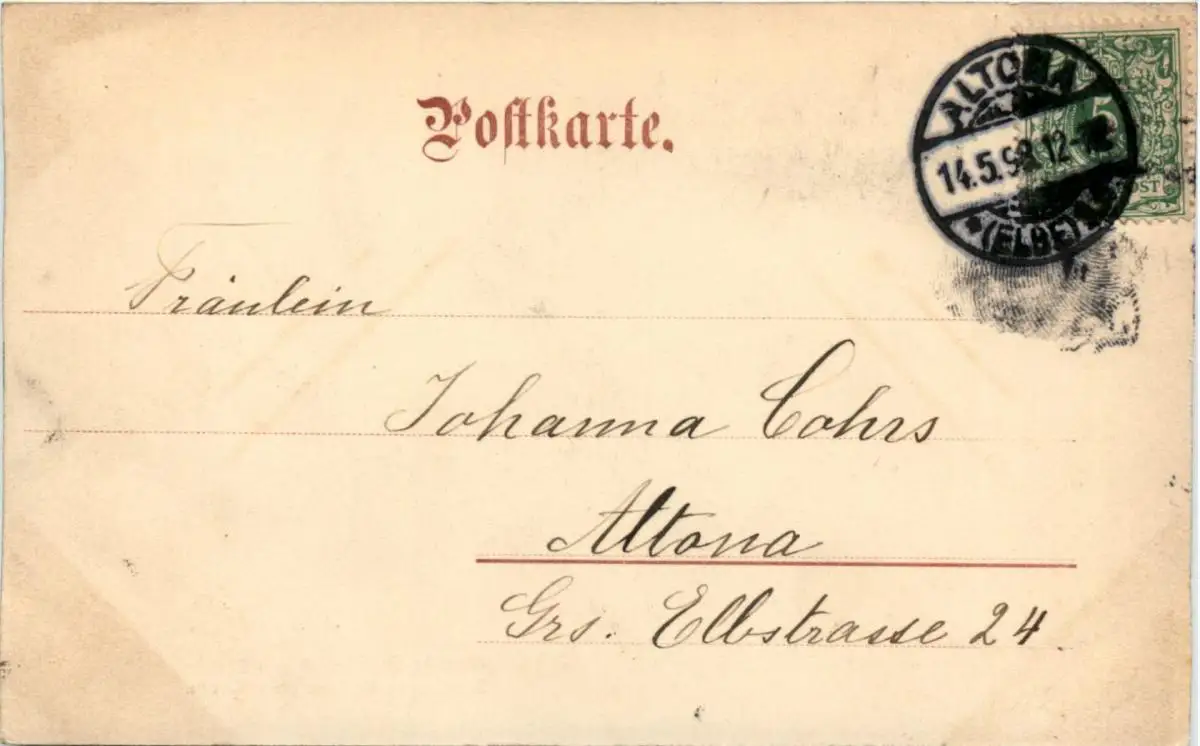 Postkarte.
ALTONA
14.5.98.12-
(ELBE)
5
POST
Fräulein
Johanna Cohrs
Altona
Grs. Elbstrasse 24.